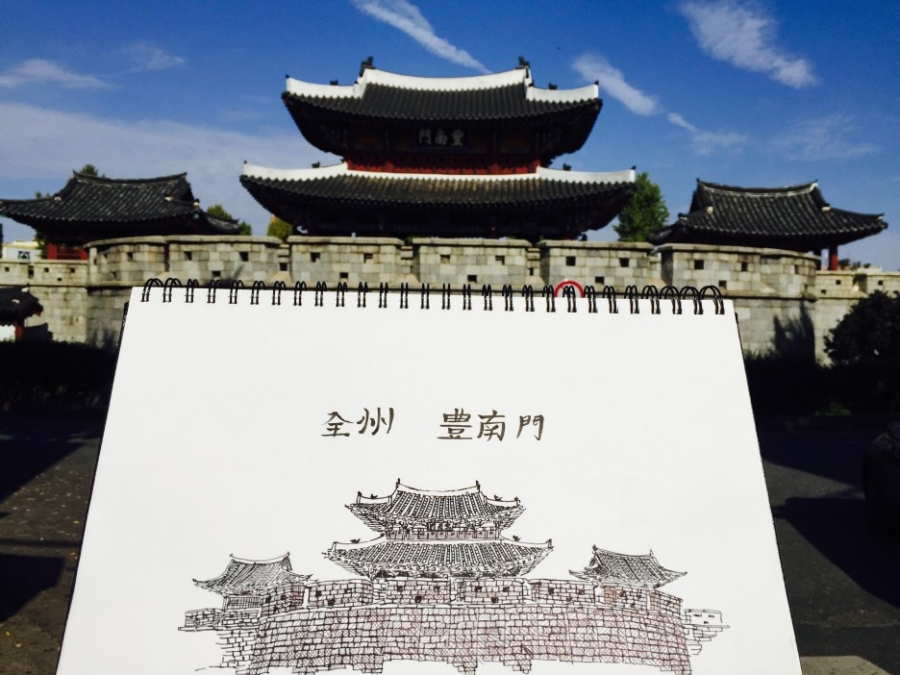 豊南門
全州 豊南門